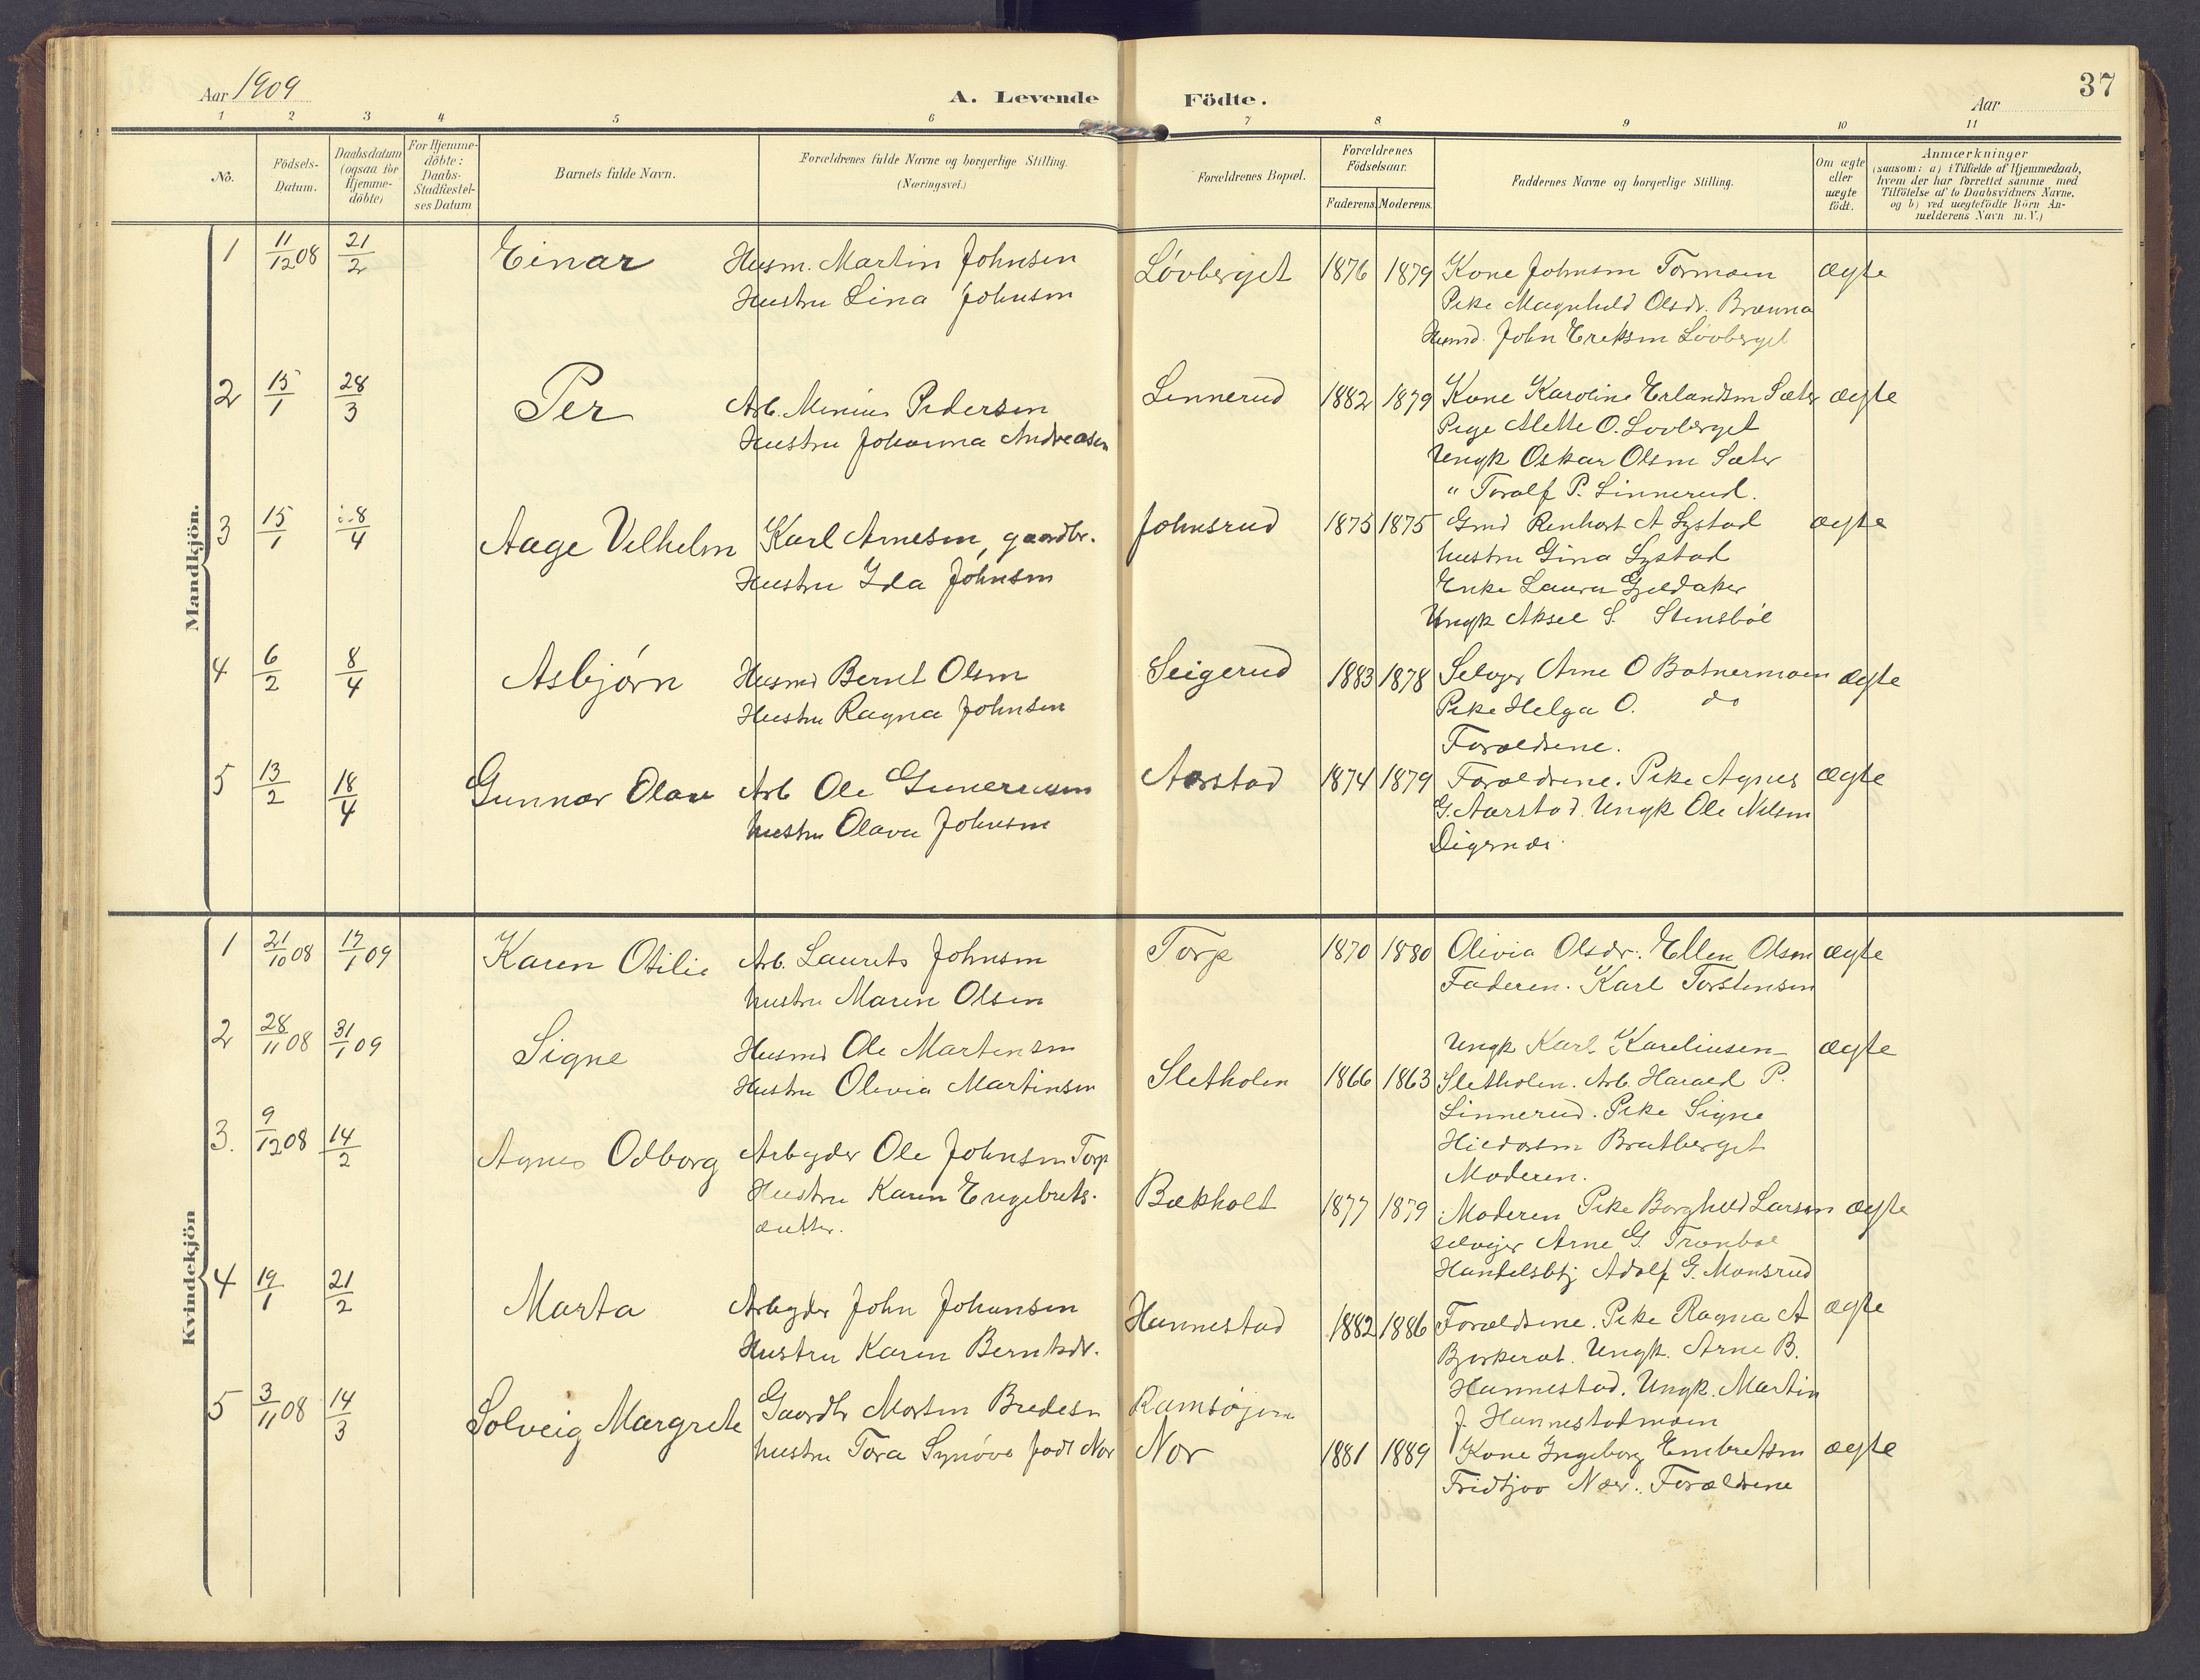 37
Aar 1909
A. Levende Födte.
Aar
1 2 3 4 5 6 7 8 9 10 11
No.
Födsels-Datum.
Daabsdatum (ogsaa for Hjemme-döbte)
For Hjemme-döbte: Daabs-Stadfæstel-ses Datum
Barnets fulde Navn.
Forældrenes fulde Navne og borgerlige Stilling.
(Næringsvei.)
Forældrenes Bopæl.
Forældrenes Födselsaar.
Faderens. Moderens.
Faddernes Navne og borgerlige Stilling.
Om ægte eller uægte födt.
Anmærkninger
(saasom: a) i Tilfælde af Hjemmedaab,
hvem der har forrettet samme med
Tilföielse af to Daabsvidners Navne,
og b) ved uægtefödte Börn An-
melderens Navn m. V.)
Mandkjön.
1 11/12 08 21/2 Einar Husm. Martin Johnsen Løvberget 1876 1879 Kone Johnsen Tormoen ægte
Hustru Lina Johnsen Pike Magnhild Olsdr. Brænna
Husmd. John Eriksen Løvberget
2 15/1 28/3 Per Arb. Menius Pedersen Linnerud 1882 1879 Kone Karoline Erlandsen Sæter ægte
Hustru Johanna Andreasen Pige Alette O. Lovberget
Ungk Oskar Olsen Sæter
" Toralf P. Linnerud.
3 15/1 8/4 Aage Vilhelm Karl Arnesen, gaardbr. Johnsrud 1875 1875 Gmd Renhart A Lystad ægte
Hustru Ida Johnsen hustru Gina Lystad
Enke Laura Gjeldaker
Ungk Aksel S. Stensbøl
4 6/2 8/4 Asbjørn Husmd Bernt Olsen Seigerud 1883 1878 Selvejer Arne O Botnermoen ægte
Hustru Ragna Johnsen Pike Helga O. do
Forældrene.
5 13/2 18/4 Gunnar Olav Arb Ole Guneriusen Aarstad 1874 1879 Forældrene. Pike Agnes ægte
hustru Olava Johnsen G. Aarstad. Ungk Ole Nilsen
Digernes.
Kvindekjön
1 21/10 08 17/1 09 Karen Otilie Arb. Laurits Johnsen Torp 1870 1880 Olivia Olsdr. Ellen Olsen ægte
hustru Maren Olsen Faderen. Karl Torstensen
2 28/11 08 31/1 09 Signe Husmd Ole Martensen Sletholen 1866 1863 Ungk Karl Kareliusen- ægte
Hustru Olivia Martinsen Sletholen. Arb. Harald P.
Linnerud. Pike Signe
Bratberget
Moderen.
3. 9/12 08 14/2 Agnes Odborg Arbeyder Ole Johnsen Torp Bækholt 1877 1879 Moderen Pike Borghild Larsen ægte
Hustru Karen Engebrets- selvejer Arne G. Trønbøl
datter. Handelsbtj Adolf G. Monsrud
4 19/1 21/2 Marta Arbeyder John Johansen Hannestad 1882 1886 Forældrene. Pike Ragna A ægte
Hustru Karen Berntsdr. Bjerkerot. Ungk. Arne B.
Hannestad. Ungk. Martin
J. Hannestadmoen
5 3/11 08 14/3 Solveig Margrete Gaardbr Morten Bredesen Ramsøjen
hustru Tora Synøve født Nor Nor 1881 1889 Kone Ingeborg Embretsen ægte
Fridtjov Nor. Forældrene